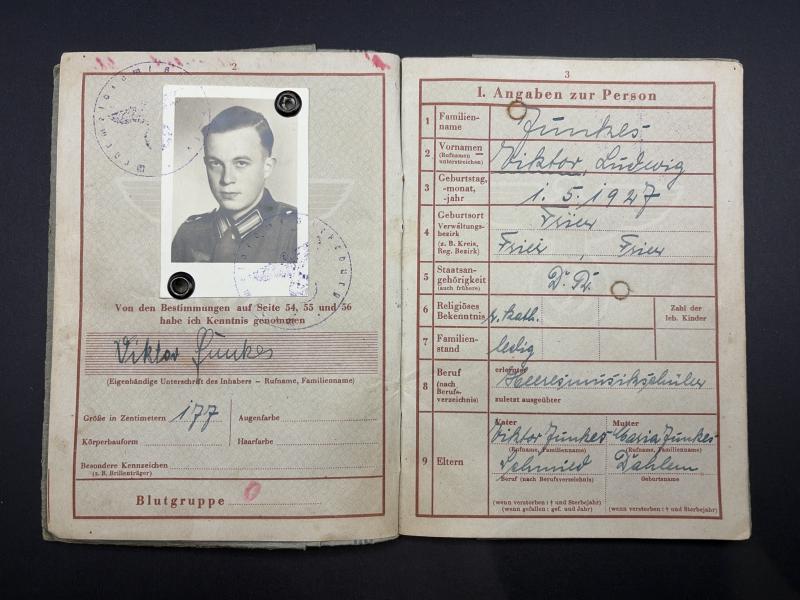 2
Von den Bestimmungen auf Seite 54, 55 und 56
habe ich Kenntnis genommen
Viktor Junkes
(Eigenhändige Unterschrift des Inhabers – Rufname, Familienname)
Größe in Zentimetern 177 Augenfarbe
Körperbauform Haarfarbe
Besondere Kennzeichen
(z. B. Brillenträger)
Blutgruppe 0
3
I. Angaben zur Person
1 Familien-
name Junkes
2 Vornamen
(Rufnamen
unterstreichen) Viktor, Ludwig
3 Geburtstag,
-monat,
-jahr 1. 5. 1927
4 Geburtsort Trier
Verwaltungs-
bezirk
(z. B. Kreis,
Reg. Bezirk) Trier, Trier
5 Staatsan-
gehörigkeit
(auch frühere) D. R.
6 Religiöses
Bekenntnis r. kath.
Zahl der
leb. Kinder
7 Familien-
stand ledig
8 Beruf
(nach
Berufs-
verzeichnis)
erlernter
Heeresmusikschüler
zuletzt ausgeübter
9 Eltern
Vater Mutter
Viktor Junkes Maria Junkes
(Rufname, Familienname) (Rufname, Familienname)
Schmied Dahlem
Beruf (nach Berufsverzeichnis) Geburtsname
(wenn verstorben: † und Sterbejahr)
(wenn gefallen: gef. und Jahr)
(wenn verstorben: † und Sterbejahr)